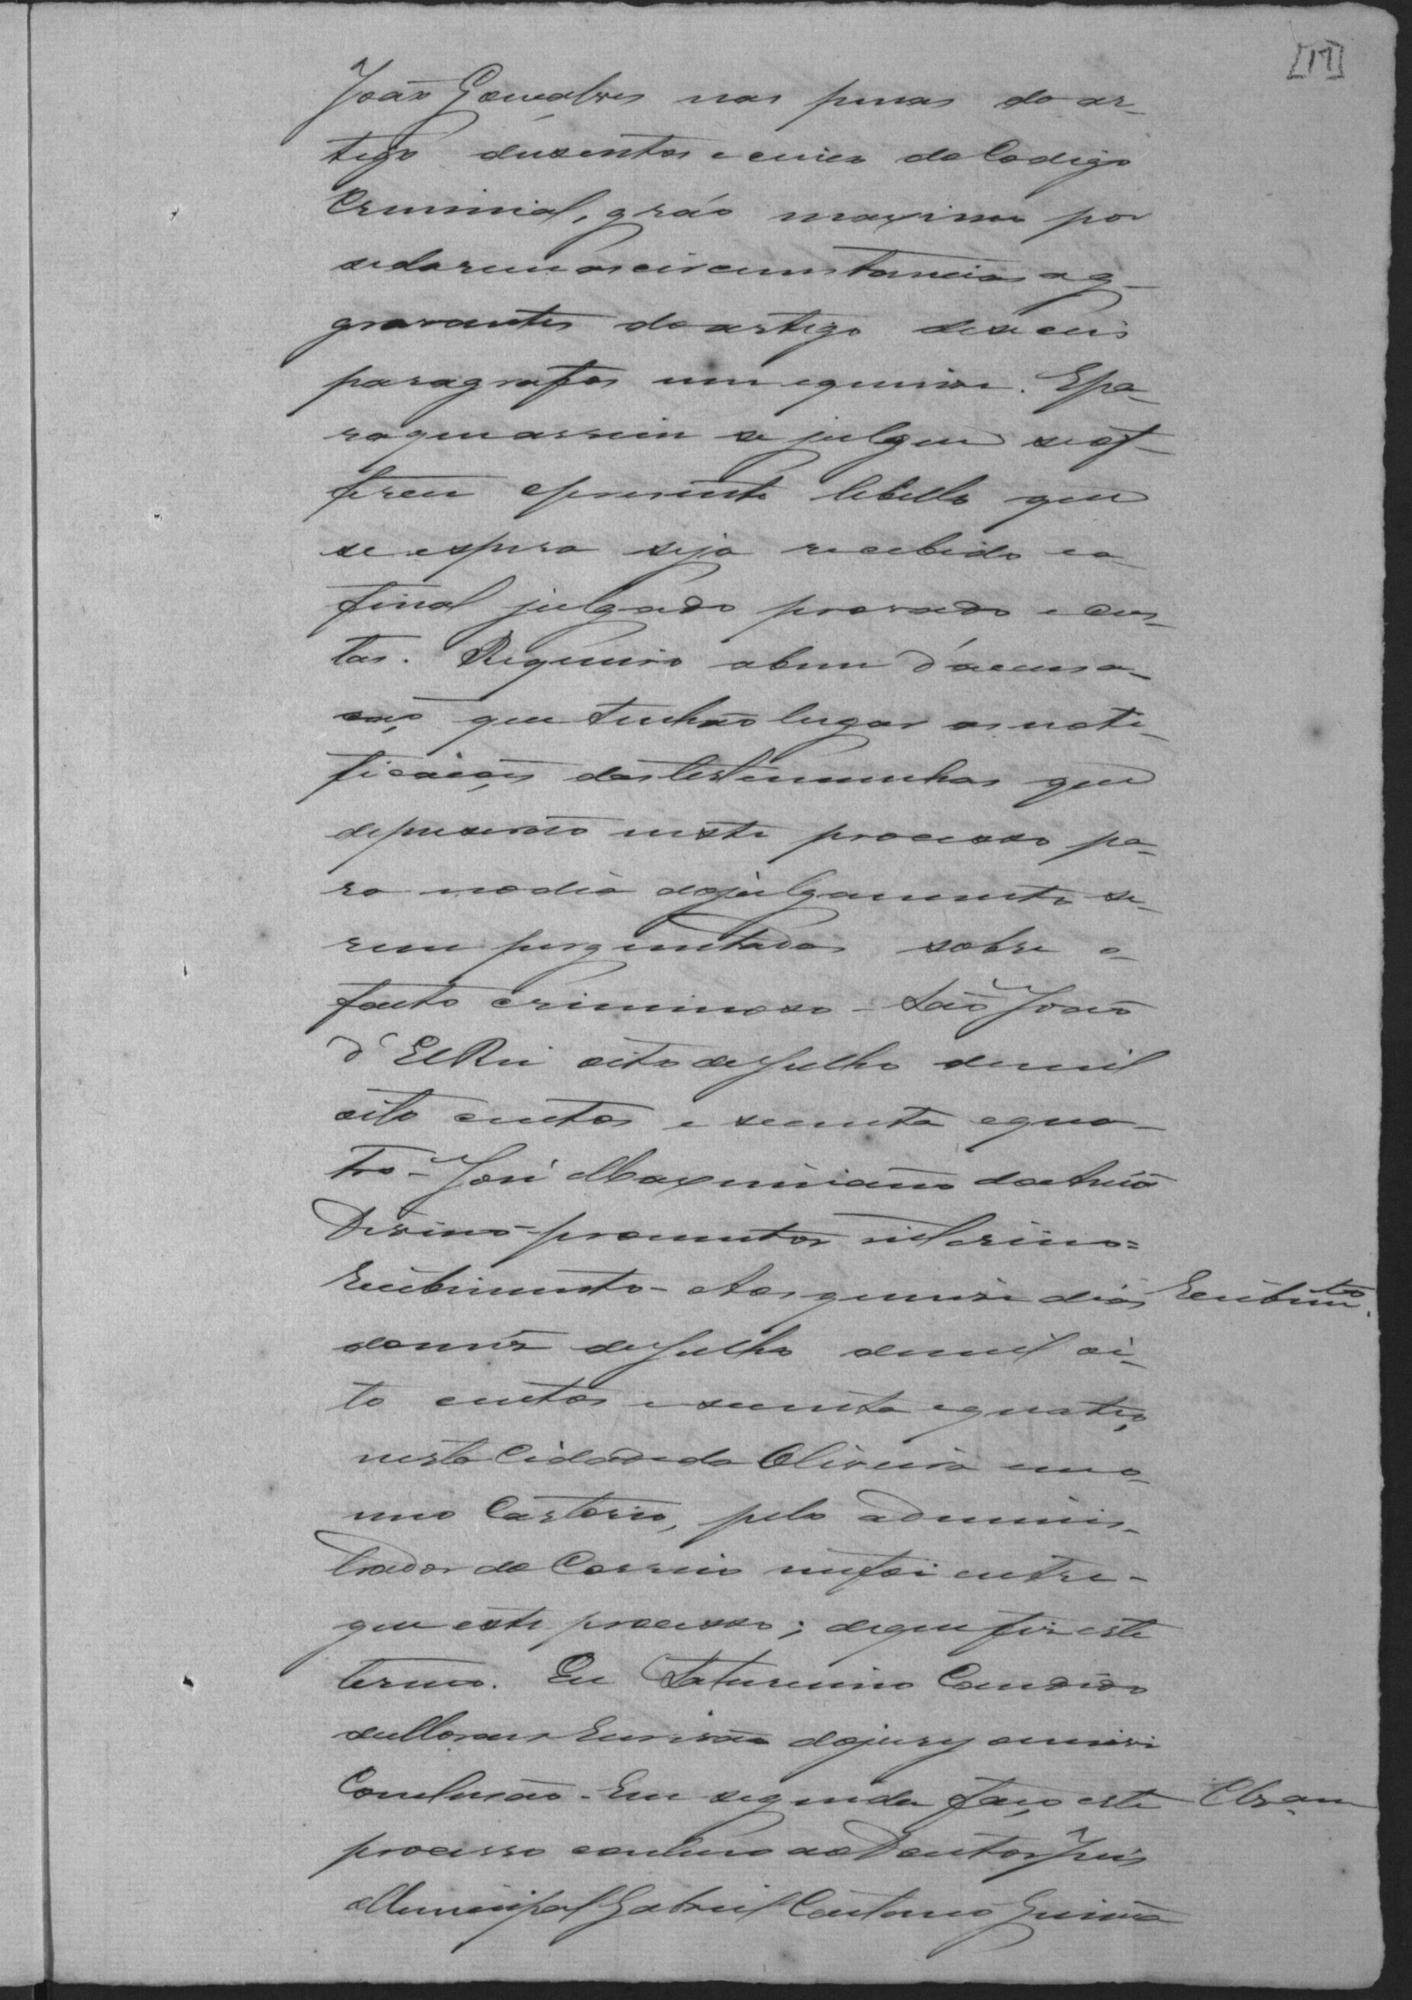 [17]
João Gonçalves nas penas do ar-
tigo dusentos e cinco do Codigo
Criminal, gráo maximo por
se darem as circumstancias ag-
gravantes do artigo deseseis
paragrafos um e quinse. E pa-
ra que assim se julgue se of-
ferece o presente libello que
se espera seja recebido e a
final julgado provado e cus-
tas. Requeiro a bem d'accusa-
ção que tenhão lugar as noti-
ficações das testemunhas que
depuserão neste processo pa-
ra no dia do julgamento se-
rem perguntadas sobre o
facto criminoso - São João
d'El Rei oito de Julho de mil
oito centos e secenta e qua-
tro - José Maximiano
Divino - promotor interino =
Recebimento - Aos quinse dias
Recebimto.
do mez de Julho de mil oi-
to centos e secenta e quatro,
nesta Cidade da Oliveira em o
meo Cartorio, pelo adminis-
trador do Correio me foi entre-
gue este processo; de que fiz este
termo. Eu Saturnino Candido
de Moraes Escrivão do jury o escrevi
Conclusão - Em seguida faço este
Clzam
processo concluso ao Doutor Juis
Municipal Gabriel Caetano